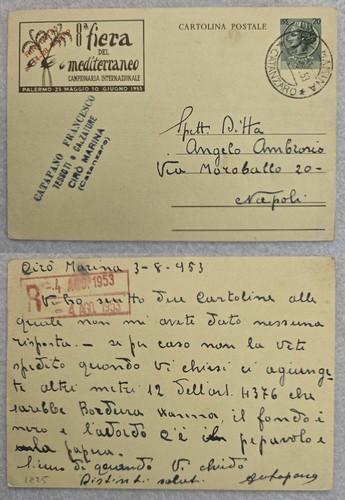 8ª fiera
DEL
mediterraneo
CAMPIONARIA INTERNAZIONALE
PALERMO 25 MAGGIO 10 GIUGNO 1953
CARTOLINA POSTALE
20
CATAPANO FRANCESCO
TESSUTI e CALZATURE
CIRÒ MARINA
(Catanzaro)
MARINA
CATANZARO
Spett. Ditta
Angelo Ambrosio
Via Moroballo 20-
Napoli
Cirò Marina 3-8-953
R -4 AGO. 1953
-4 AGO. 1953
Vi ho scritto due Cartoline alle
quale non mi avete dato nessuna
risposta - se per caso non la vete
spedito quando Vi chiesi ci aggiunge
te altri metri 12 dell'art. 4376 che
sarebbe Bordura Karina il fondo è
nero e l'adordo c'è in pepavolo e
papera.
di quando Vi chiedo
Distinti saluti. Catapano
1825